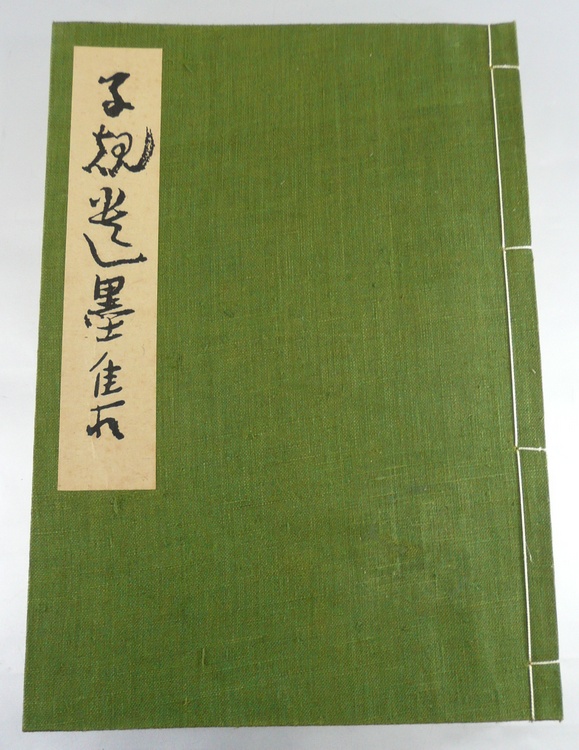 子規遺墨集